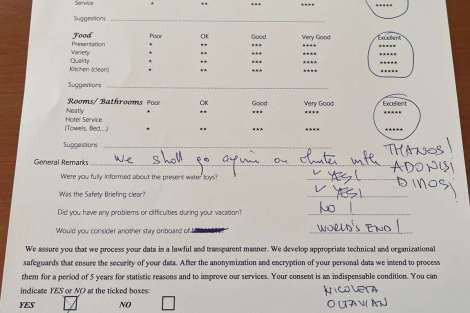 Service * ** *** **** *****
Suggestions
Food Poor OK Good Very Good Excellent
Presentation * ** *** **** *****
Variety * ** *** **** *****
Quality * ** *** **** *****
Kitchen (clean) * ** *** **** *****
Suggestions
Rooms/ Bathrooms Poor OK Good Very Good Excellent
Neatly * ** *** **** *****
Hotel Service
(Towels, Bed,...) * ** *** **** *****
Suggestions
General Remarks We shall go again on charter with THANOS!
ADONIS!
DINOS!
Were you fully informed about the present water toys? ✓ YES!
Was the Safety Briefing clear? ✓ YES!
Did you have any problems or difficulties during your vacation? NO!
Would you consider another stay onboard of WORLD'S END!
We assure you that we process your data in a lawful and transparent manner. We develop appropriate technical and organizational
safeguards that ensure the security of your data. After the anonymization and encryption of your personal data we intend to process
them for a period of 5 years for statistic reasons and to improve our services. Your consent is an indispensable condition. You can
indicate YES or NO at the ticked boxes:
YES NO
NICOLETA
OCTAVIAN